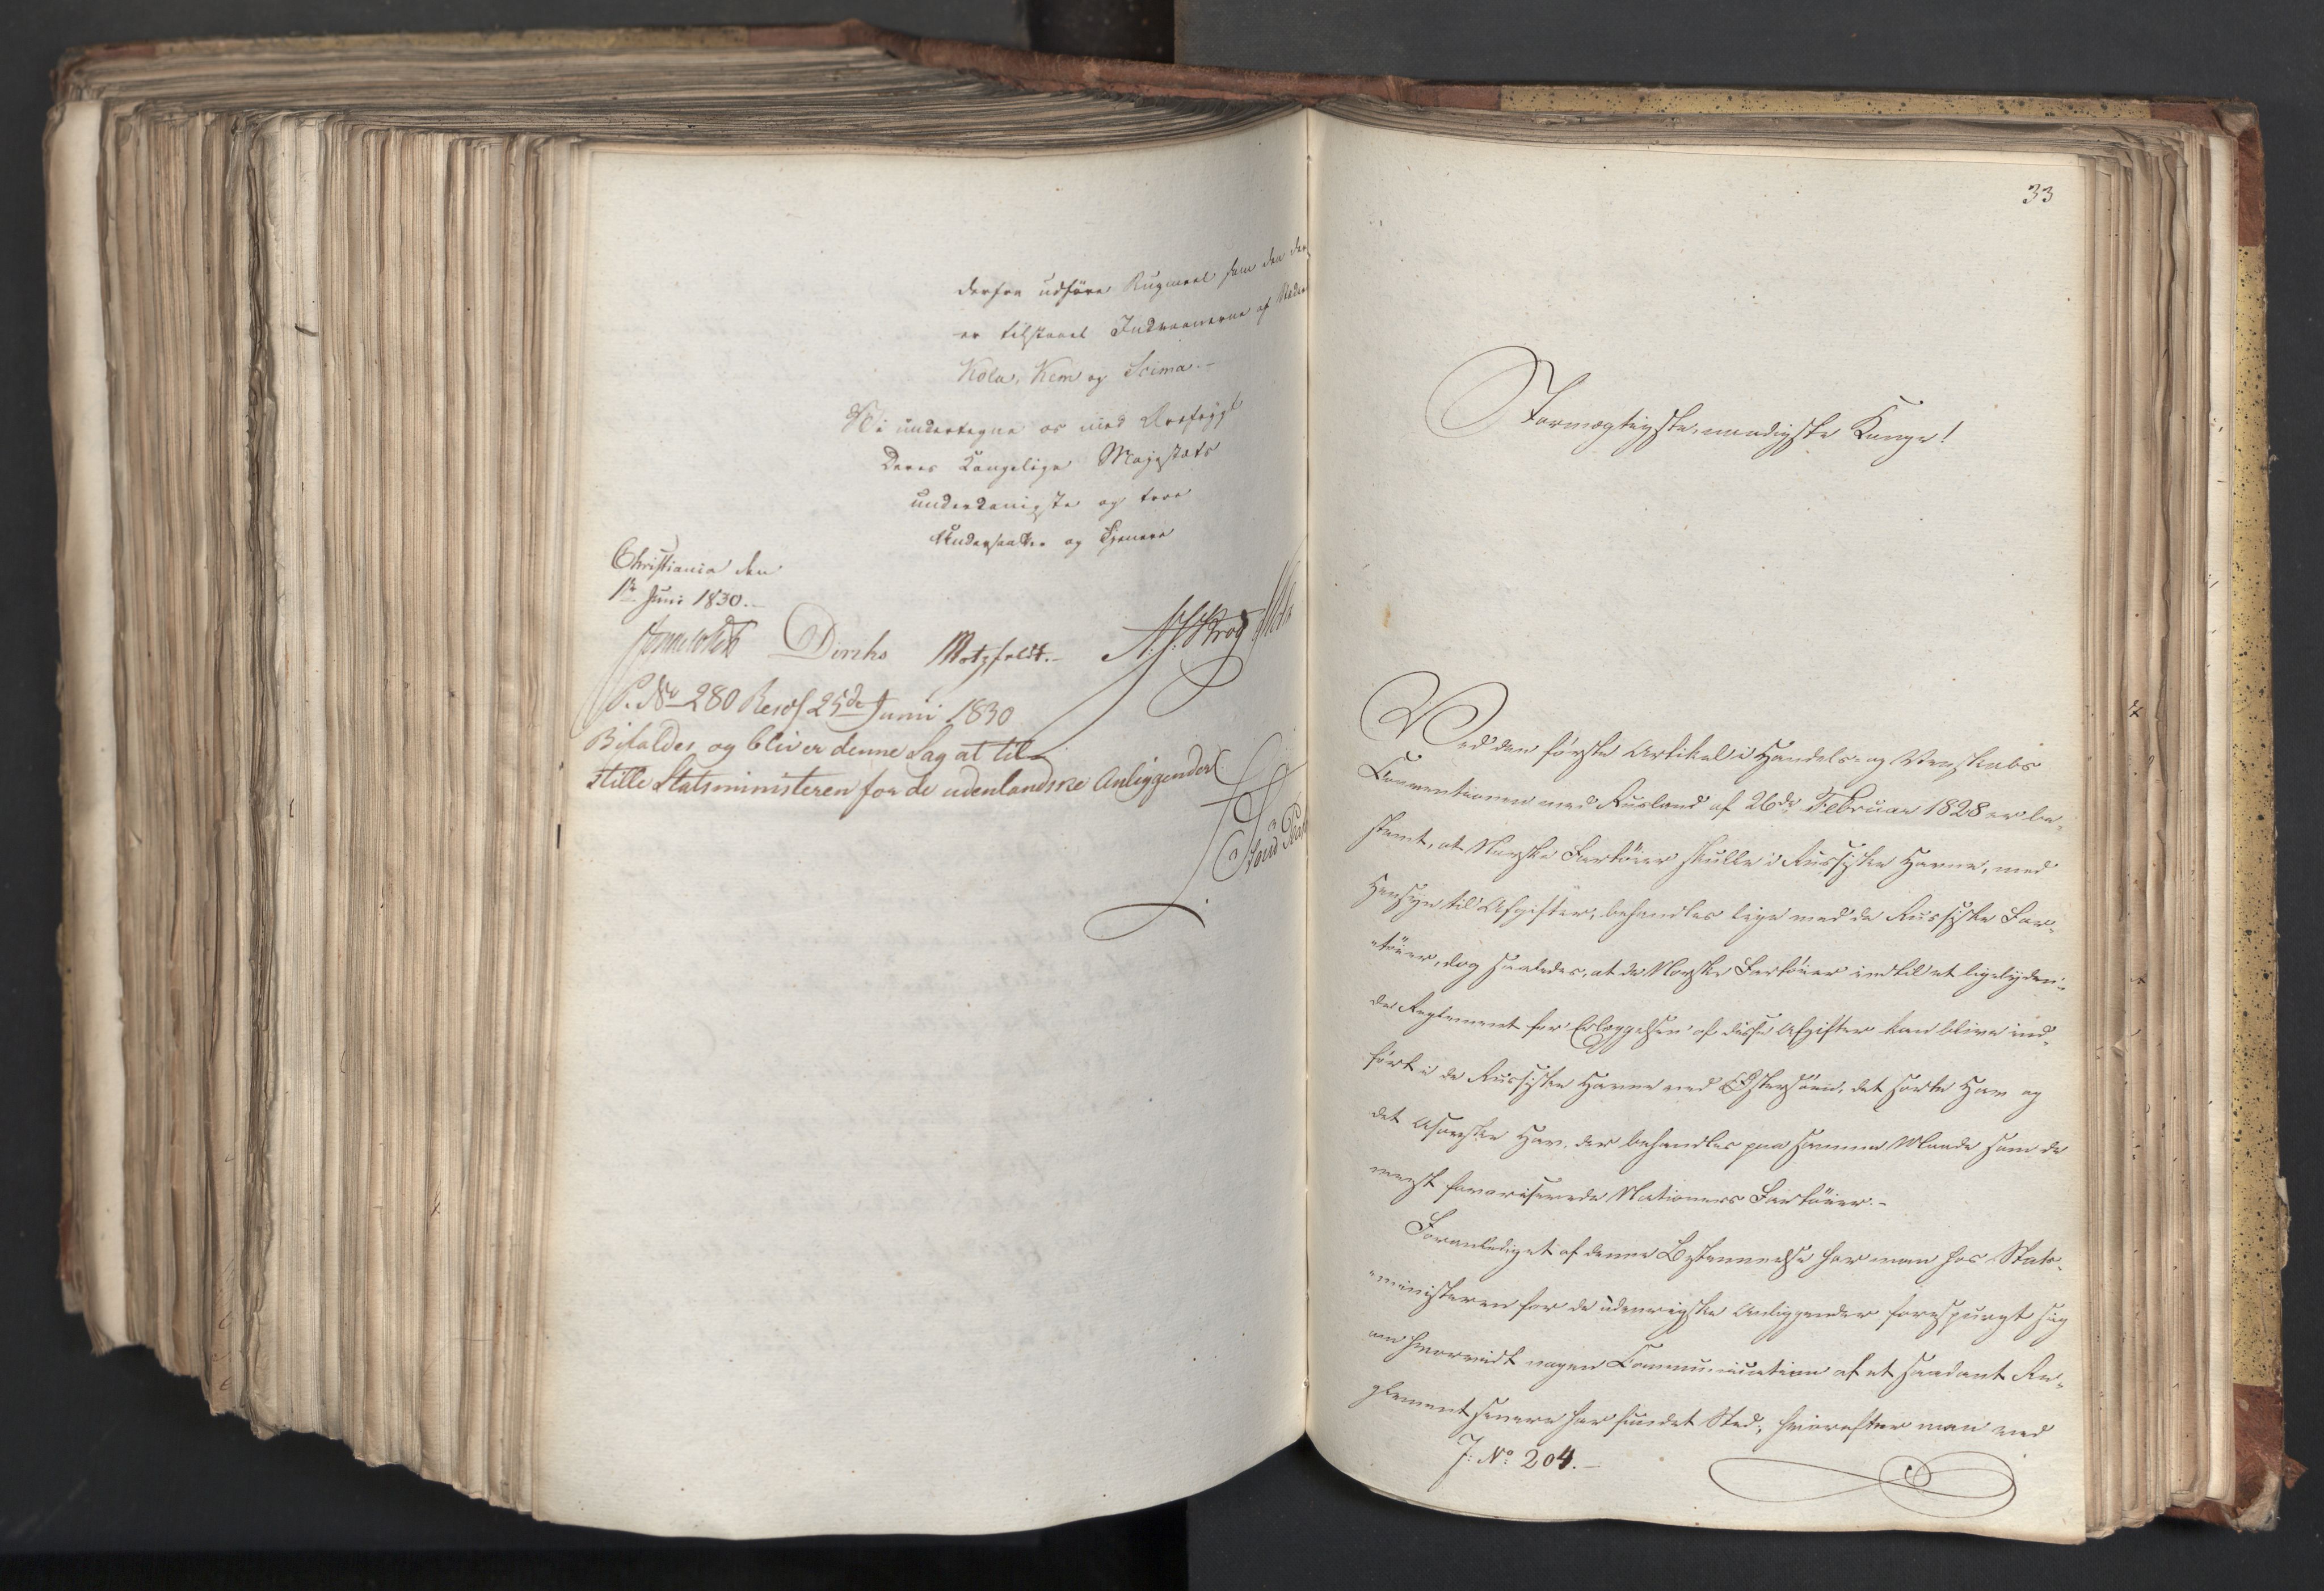 derfra udføre Rugmeel som den der
er tilstaaet Indvaanerne af Stæderne
Kola, Kem og Soima.-
Vi undertegne os med Ærefrygt
Deres Kongelige Majestæts
underdanigste og troe
Undersaatter og Tjenere
Christiania den
1te Juni 1830.-
Diriks Motzfeldt.-
P. No 280 Resol 25de Junii 1830
Bifaldes, og bliver denne Sag at til-
stille Statsministeren for de udenlandske Anliggender
33
Stormægtigste, naadigste Konge!
Ved den første Artikel i Handels- og Venskabs
Conventionen med Rusland af 26de Februar 1828 er be-
stemt, at Norske Fartøier skulle i Russiske Havne, med
Hensyn til Afgifter, behandles lige med de Russiske Far-
tøier, dog saaledes, at de Norske Fartøier indtil et ligelyden-
de Reglement for Erlæggelsen af disse Afgifter kan blive ind-
ført i de Russiske Havne ved Østersøen, det sorte Hav og
det Asowske Hav, der behandles paa samme Maade som de
meest favoriserede Nationers Fartøier.-
Foranlediget af denne Bestemmelse har man hos Stats-
ministeren for de udenrigske Anliggender forespurgt sig
om hvorvidt nogen Communication af et saadant Re-
glement senere har fundet Sted; hvorefter man ved
J: No: 204.-